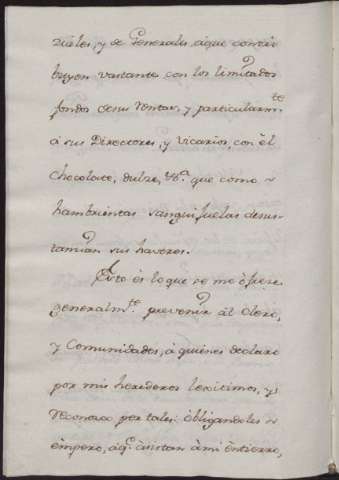 ziales, y de Generales, aque contri
buyen vastante con los limitados
fondos desus rentas, y particularmte
á sus Directores, y Vicarios, con êl
chocolate, dulze, &a. que como
hambrientas sanguijuelas desus
tanzian sus haveres.
Esto és loque se me ôfreze
generalmte. prevenir âl Clero,
y Comunidades, â quienes declaro
por mis herederos lexitimos, y
reconosco por tales: ôbligandoles
êmpero, âq.e âsistan âmi êntierro,